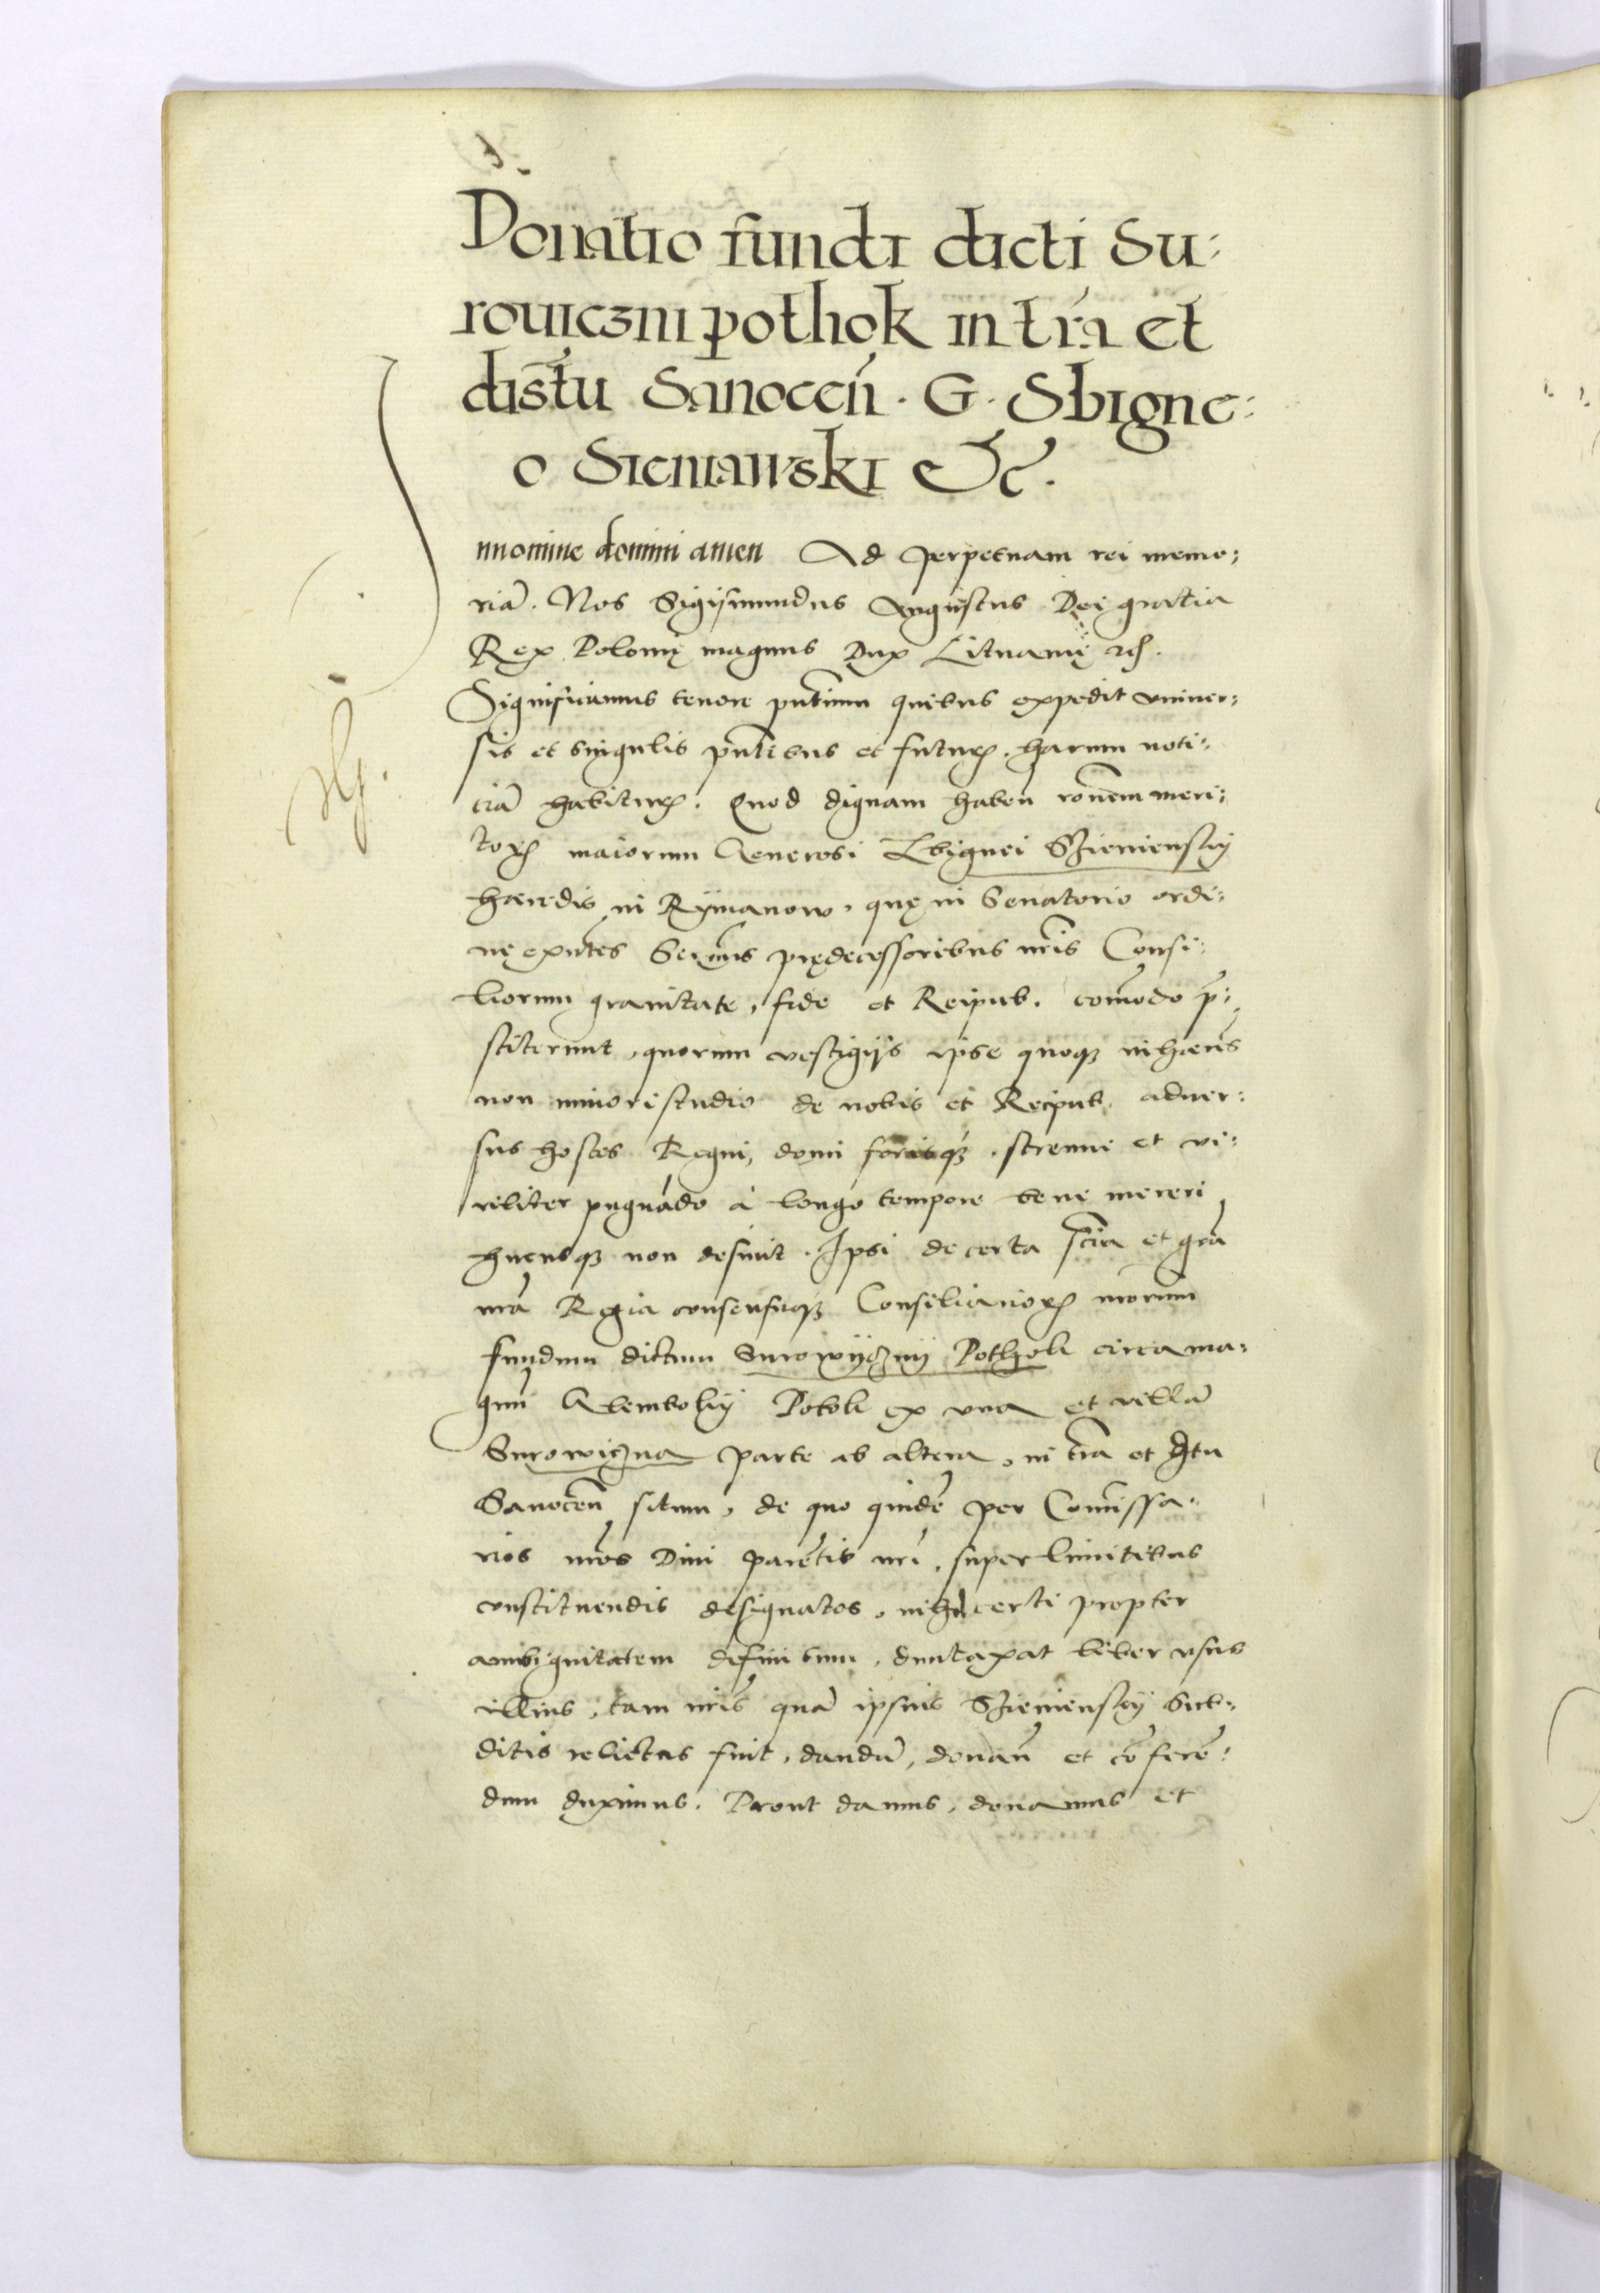 Donatio fundi dicti Su:
rouiczni pothok in tr̃a et
distr̃u Sanoceñ. G. Sbigne:
o Sieniawski etc.
In nomine domini amen Ad perpetuam rei memo:
riã. Nos Sigismundus Augustus Dei gratia
Rex Polonię magnus Dux Lituanię etc.
Significamus tenore pñtium quibus expedit vniuer:
sis et singulis pñtibus et futuris harum noti:
ciã habituris. Quod dignam habeñ rõnem meri:
torum maiorum Generosi Sbignei Szieniensky
hæredis in Rymanow, quę in Senatorio ordi:
nę exñtes Sermis prędecessoribus nr̃is Consi:
liorum grauitate, fide et Reipub. comodo p̃:
stiterunt, quorum vestigijs ipse quoque inhærẽs
non minori studio de nobis et Reipub. aduer:
sus hostes Regni, domi forisque, strenue et vi:
riliter pugnãdo à longo tempore bene mereri
hucusque non desinit. Ipsi de certa sciã et gr̃a
nr̃a Regia consensuque Consiliariorum nr̃orum
fundum dictum Surowyczny Pothok circa ma:
gnũ Potok ex vna et villã
Surowiczna parte ab altera, in tr̃a et dr̃tu
Sanoceñ situm, de quo quidẽ per Comissa:
rios nr̃os Diui parẽtis nr̃i, super limitibus
constituendis designatos, nihil certi propter
ambiguitatem definitum, duntaxat liber vsus
illius, tam nr̃is quã ipsius Szieniensky Sub:
ditis relictus fuit, dandũ, donañ et cõferẽ:
dum duximus. Prout damus, donamus et